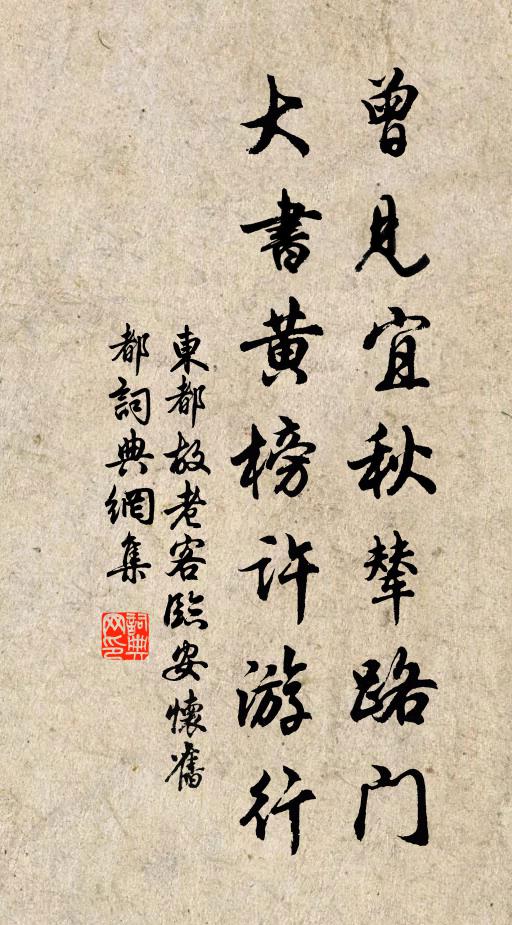 曾見宜秋輦路门
大書黄榜许游行
東都故老客臨安懷舊
都詞典網集
詞典网印